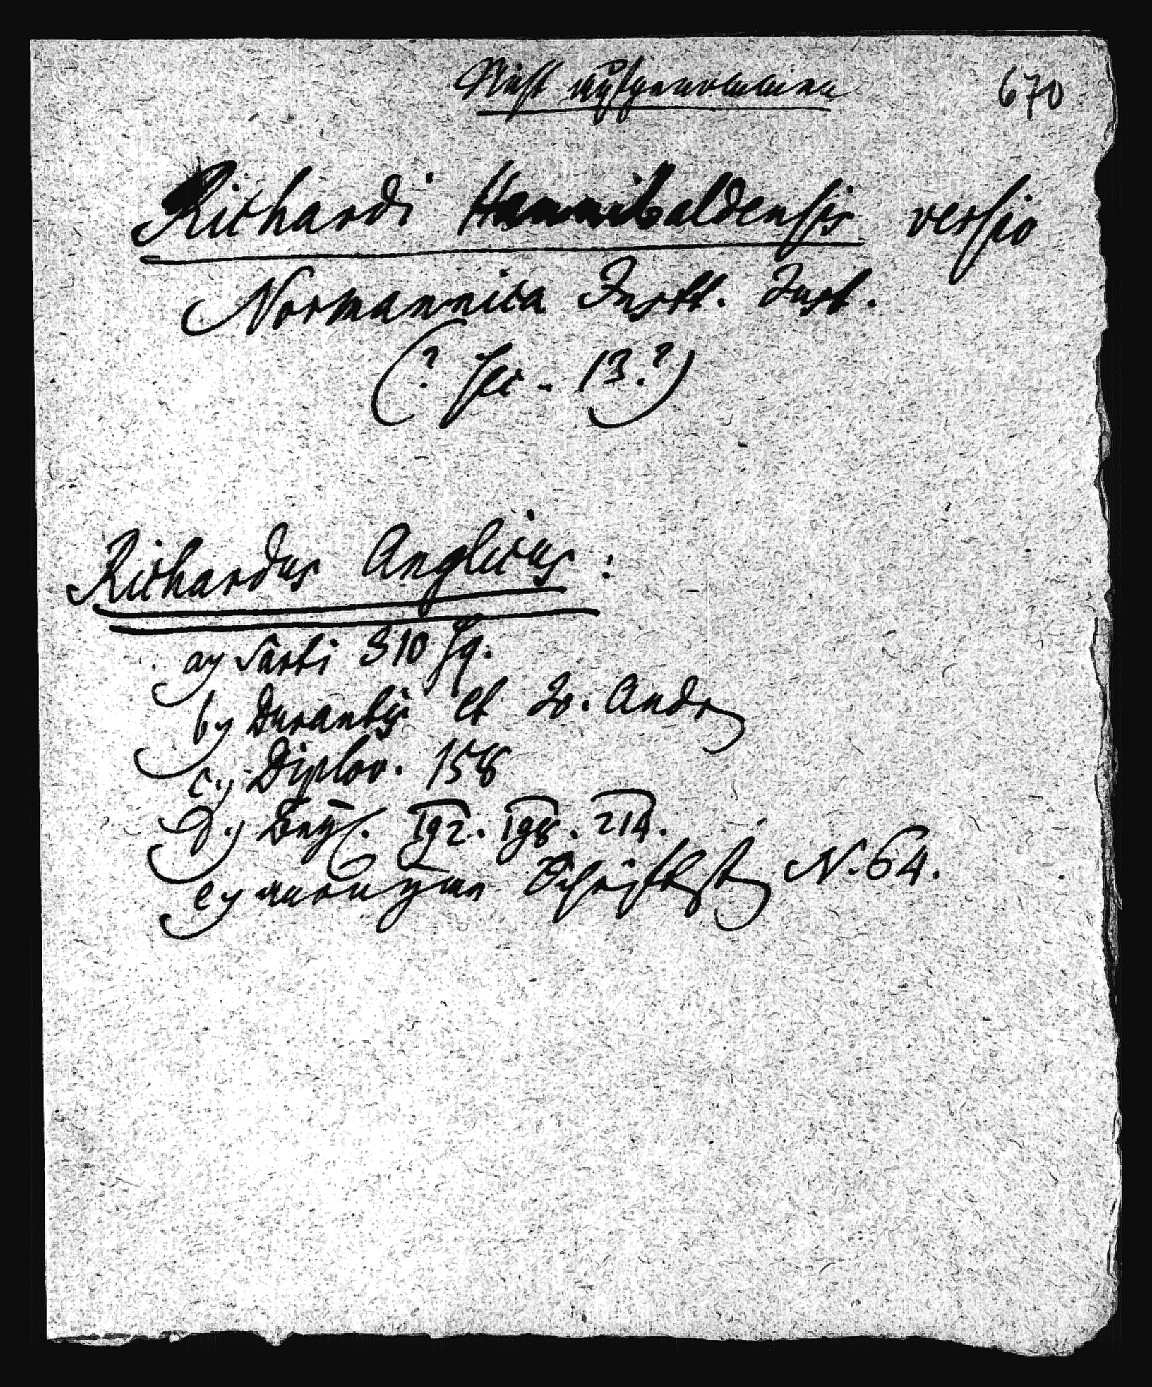 Nicht aufgenommen
670
Richardi Hannibaldensis versio
Normannica Instt. Just.
(? Sec. 13.?)
Richardus Anglicus:
a) Sarti 310 sq.
b) Durantis et Jo. Andr
c) Diplov. 158
d) 192. 198. 214.
e) N. 64.